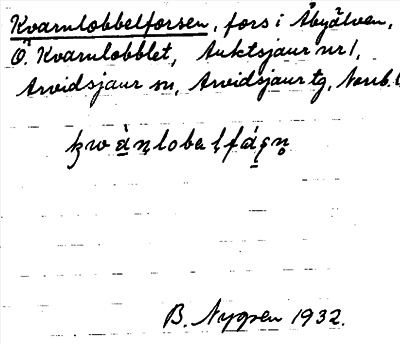 Kvarnlobbelforsen, fors i Åbyälven,
Ö. Kvarnlobblet, Auktsjaur nr 1,
Arvidsjaur sn, Arvidsjaur tg, Norrb. l
B. Nygren 1932.